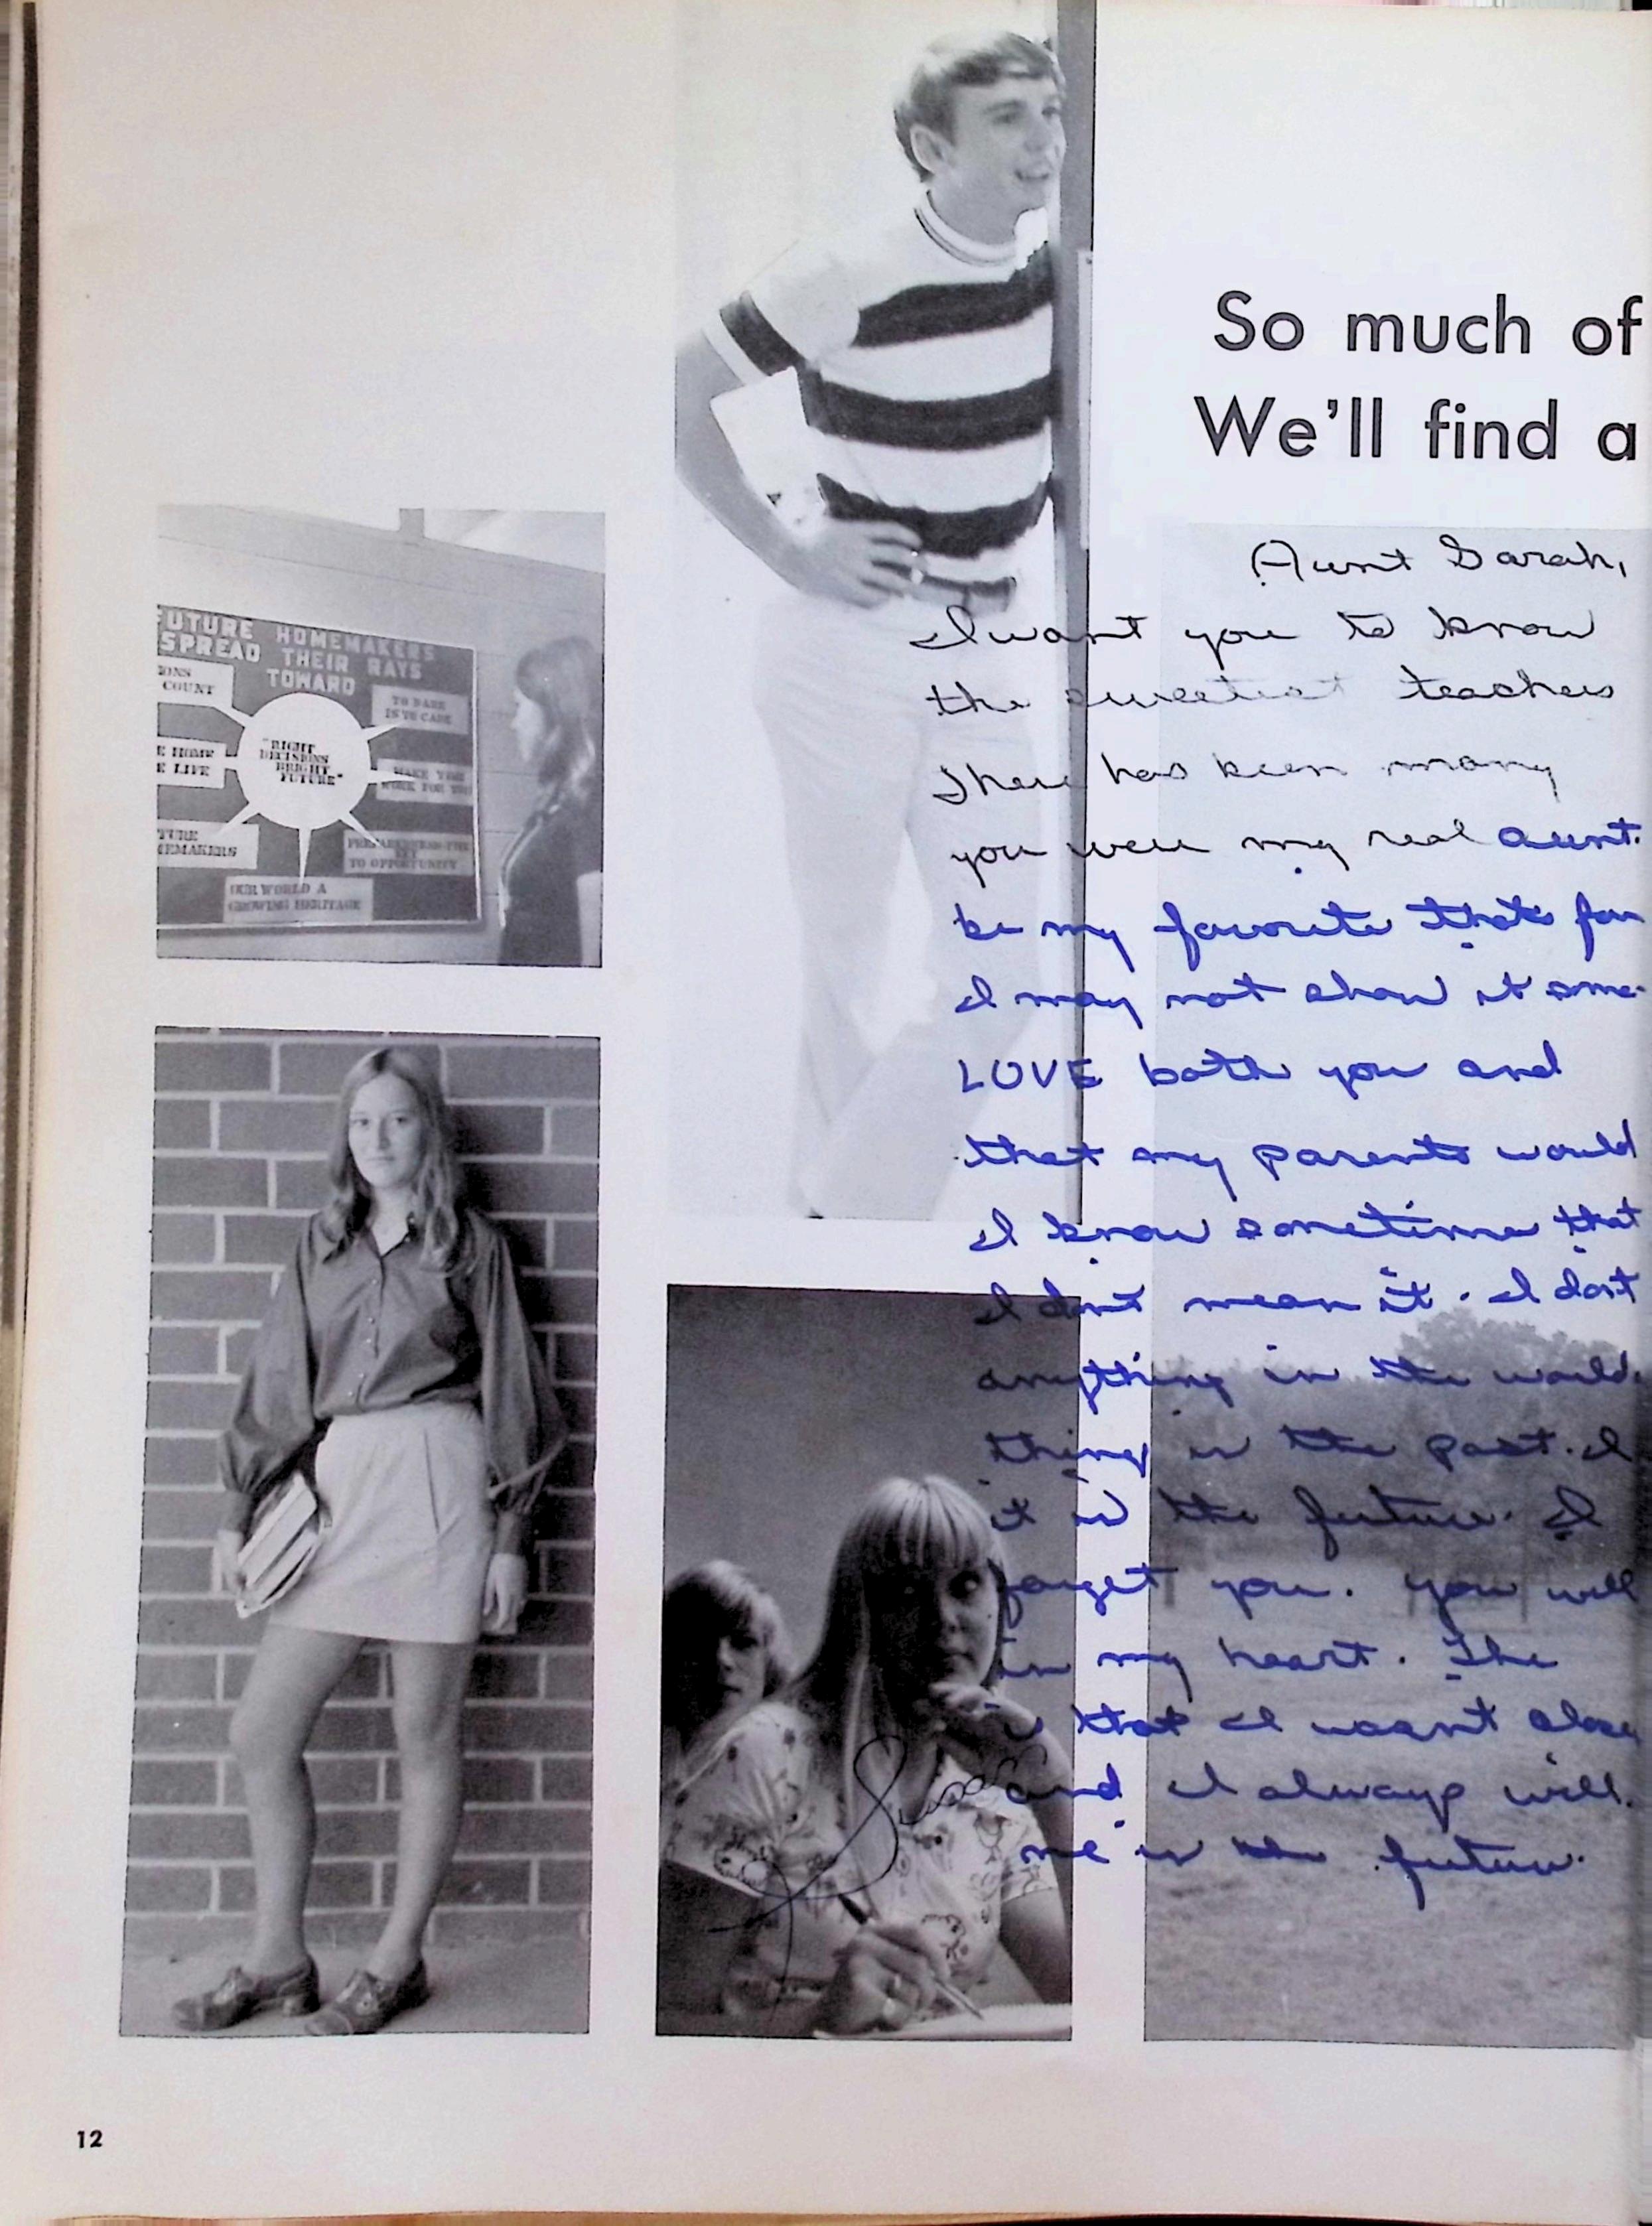 So much of
We'll find a
FUTURE HOMEMAKERS
SPREAD THEIR RAYS
TOWARD
IONS
COUNT
TO DARE
IS TO CARE
"RIGHT
DECISIONS
BRIGHT
FUTURE"
E HOME
E LIFE
MAKE YOU
WORK FOR YOU
TURE
EMAKERS
TO OPPORTUNITY
OUR WORLD A
GROWING HERITAGE
Aunt Sarah,
I want you to know
the sweetest teachers
There has been many
you were my real aunt.
be my favorite that's for
I may not show it some-
LOVE both you and
that my parents would
I know sometime that
I don't mean it. I don't
anything in the world.
thing in the past. I
it in the future. I
forget you. You will
in my heart. The
is that I wasn't close
and I always will.
me in the future.
Susan
12